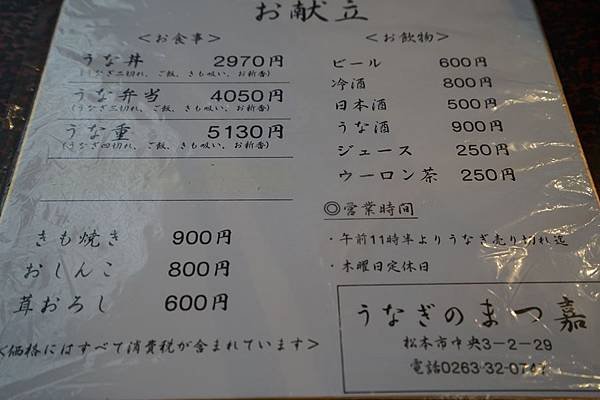 お献立
＜お食事＞
うな丼 2970円
(うなぎ二切れ、ご飯、きも吸い、お新香)
うな弁当 4050円
(うなぎ三切れ、ご飯、きも吸い、お新香)
うな重 5130円
(うなぎ四切れ、ご飯、きも吸い、お新香)
きも焼き 900円
おしんこ 800円
茸おろし 600円
＜価格にはすべて消費税が含まれています＞
＜お飲物＞
ビール 600円
冷酒 800円
日本酒 500円
うな酒 900円
ジュース 250円
ウーロン茶 250円
◎営業時間
・午前11時半よりうなぎ売り切れ迄
・木曜日定休日
うなぎのまつ嘉
松本市中央3－2－29
電話0263-32-0747